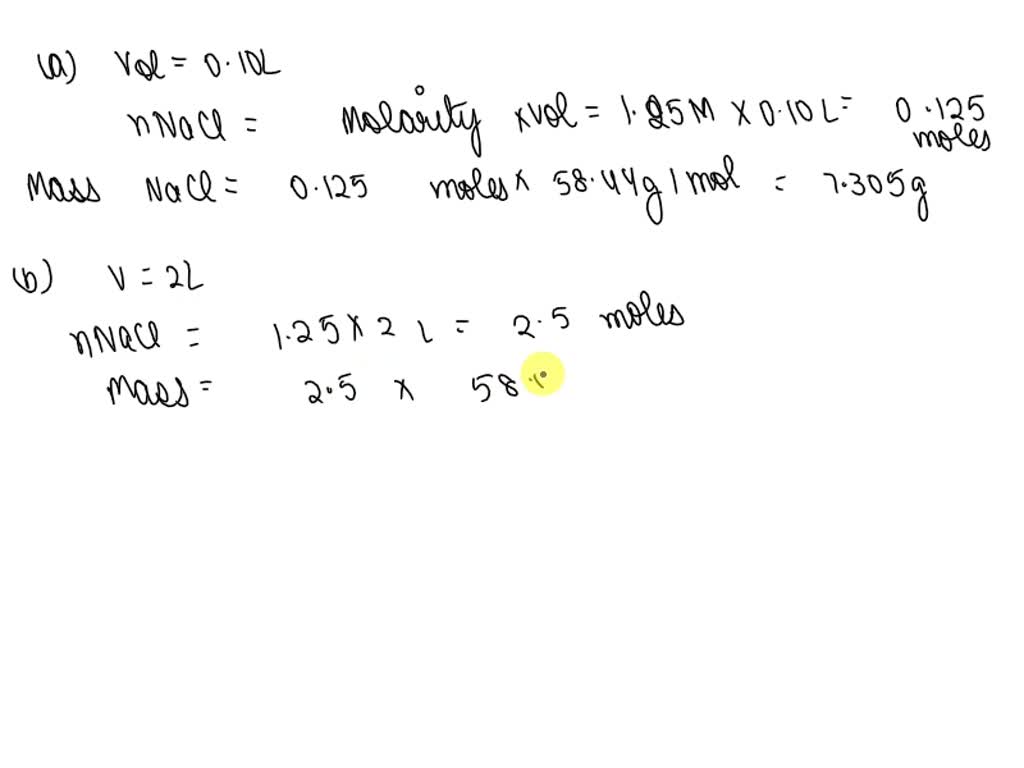 (a) Vol = 0.10L
nNaCl = Molarity x Vol = 1.25M X 0.10L = 0.125 moles
Mass NaCl = 0.125 moles x 58.44g/mol = 7.305g
(b) V = 2L
nNaCl = 1.25 X 2 L = 2.5 moles
Mass = 2.5 x 58.